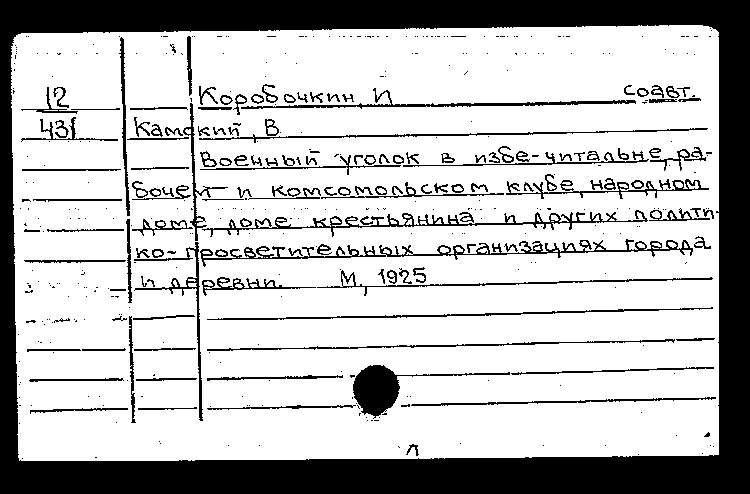 12 Коробочкин, И соавт.
431 Камский, В
Военный уголок в избе-читальне, ра-
бочем и комсомольском клубе, народном
доме, доме крестьянина и других полити-
ко-просветительных организациях города
и деревни. М., 1925
л